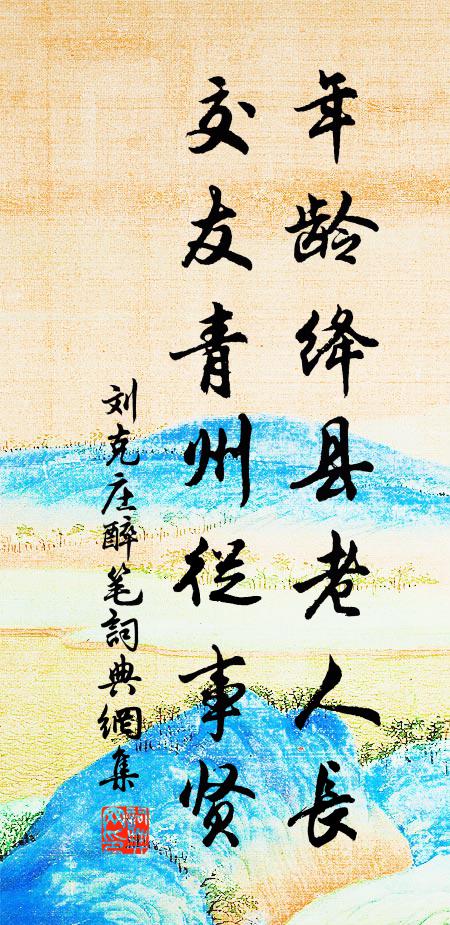 年龄绛县老人长
交友青州從事贤
刘克庄醉笔詞典網集